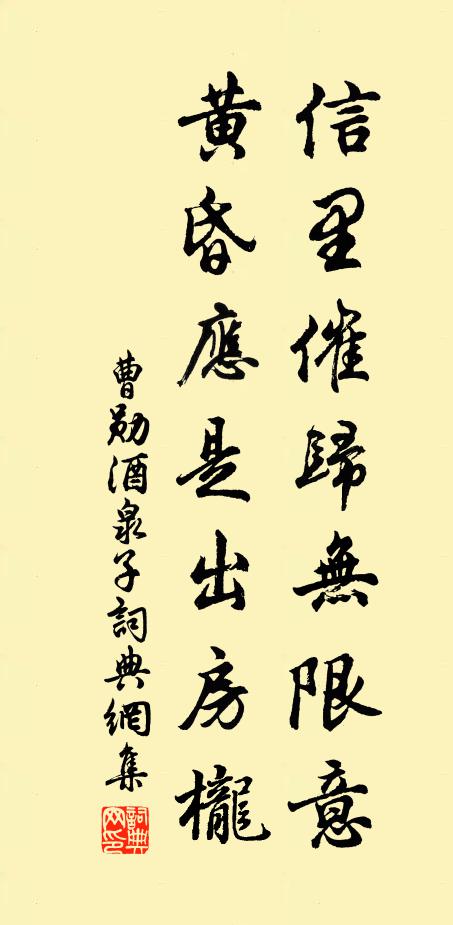 信里催歸無限意
黃昏應是出房櫳
曹勛酒泉子詞典網集
詞典
网印